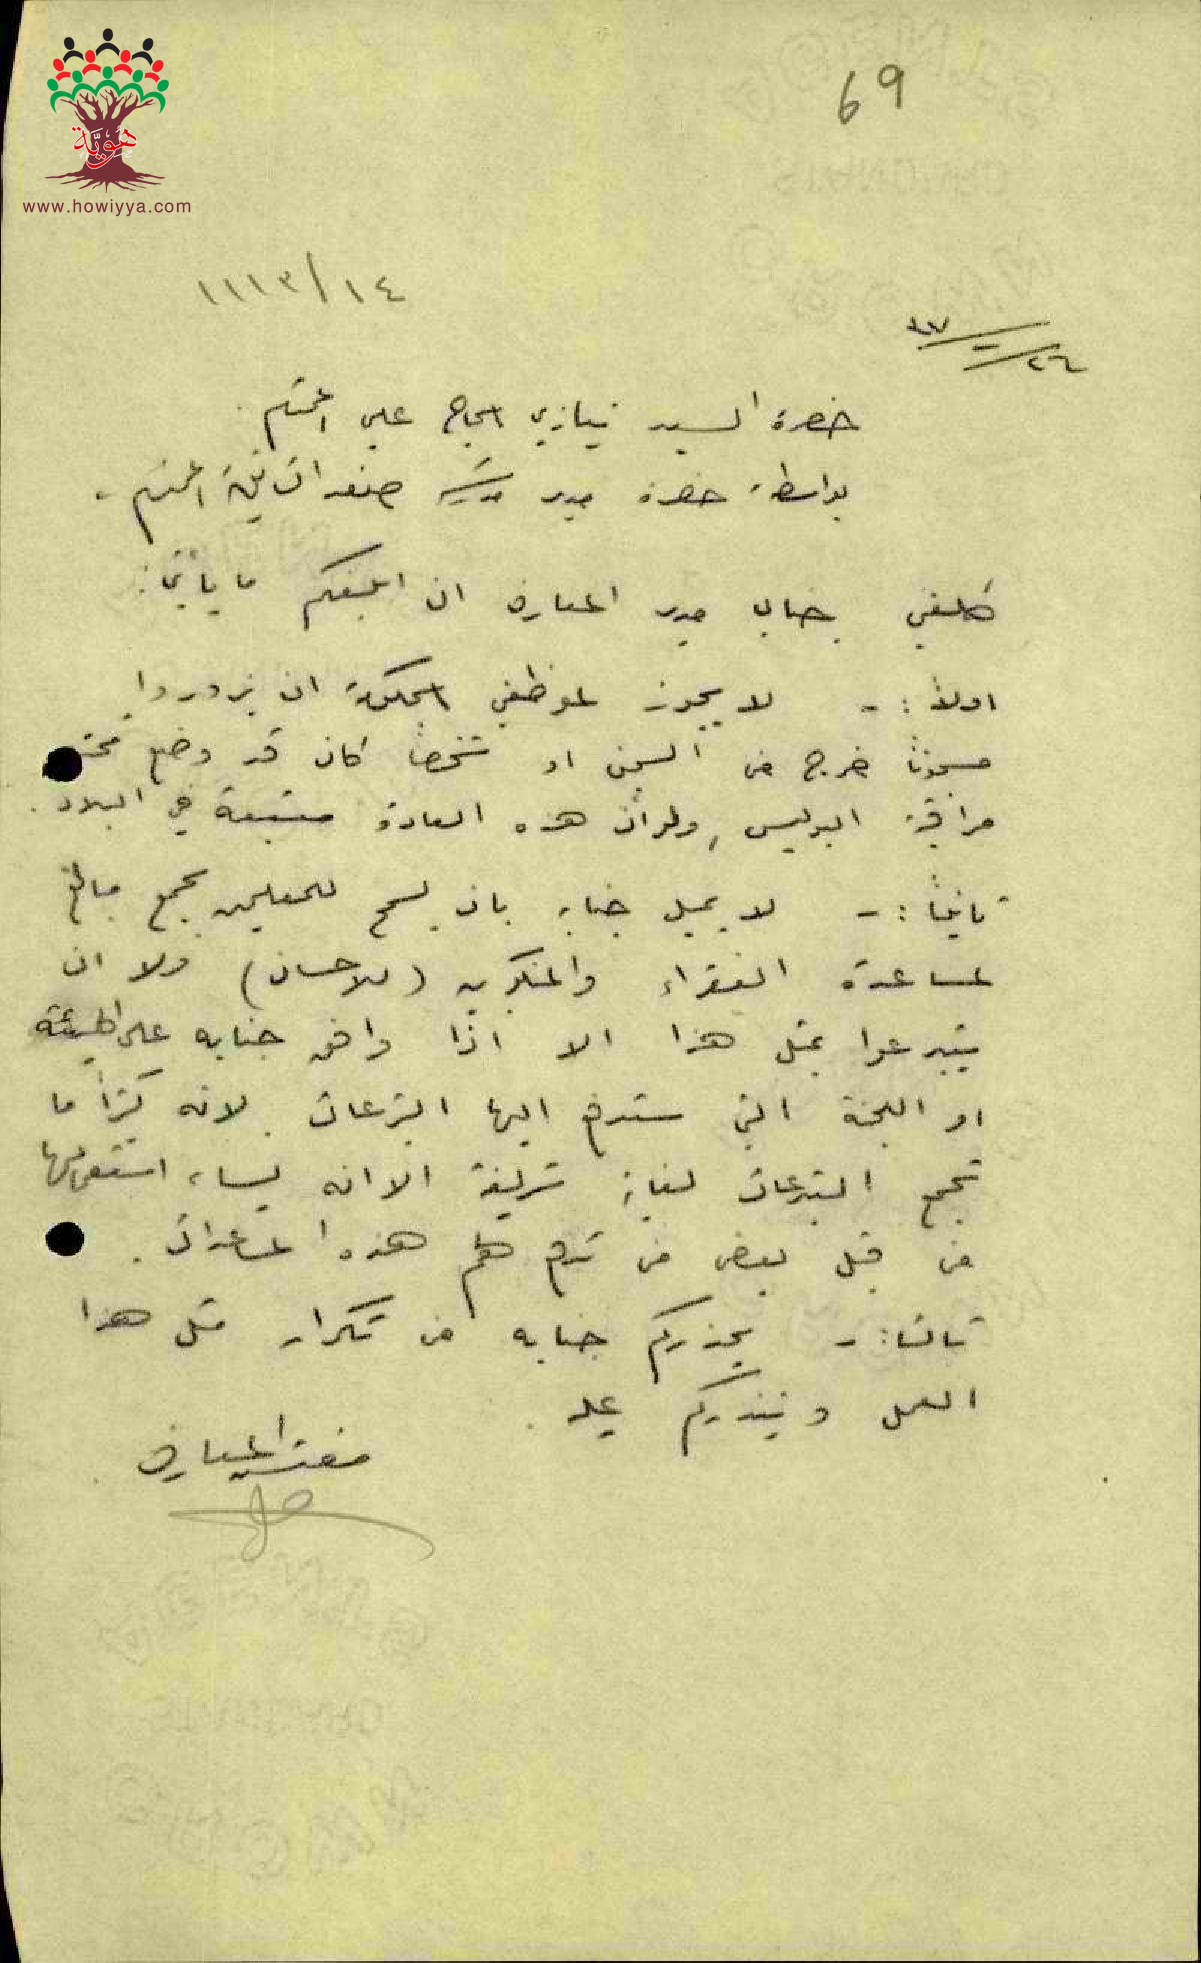 هوية
www.howiyya.com
69
١١١٣/١٤
حضرة السيد نيازي الحاج علي المحترم.
بواسطة حضرة مدير مدرسة صفد الثانوية المحترم.
كلفني جناب مدير المعارف ان ابلغكم ما يأتي:
اولاً :- لا يجوز لموظفي الحكومة ان يزوروا
مسجوناً خرج من السجن او شخصاً كان قد وضع تحت
مراقبة البوليس, ولو ان هذه العادة متبعة في البلاد.
ثانياً :- لا يميل جنابه بان يسمح للمعلمين بجمع مبالغ
لمساعدة الفقراء والمنكوبين (للاحسان) ولا ان
يتبرعوا بمثل هذا الا اذا وافق جنابه على الهيئة
او اللجنة التي ستدفع اليها التبرعات. لانه كثيراً ما
تجمع التبرعات لغاية شريفة الا انه يساء استعمالها
من قبل بعض من تدفع لهم هذه المساعدات.
ثالثا:- يحذركم جنابه من تكرار مثل هذا
العمل وينذركم عليه.
مفتش المعارف